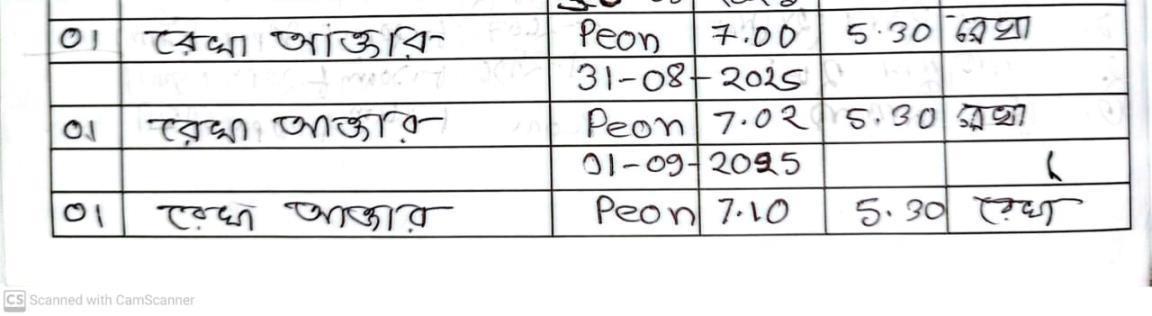 01 রেখা আক্তার Peon 7.00 5.30 রেখা
31-08-2025
01 রেখা আক্তার Peon 7.02 5.30 রেখা
01-09-2025
01 রেখা আক্তার Peon 7.10 5.30 রেখা
CS Scanned with CamScanner